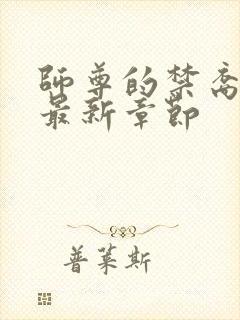 師尊的禁脔
最新章節
普萊斯